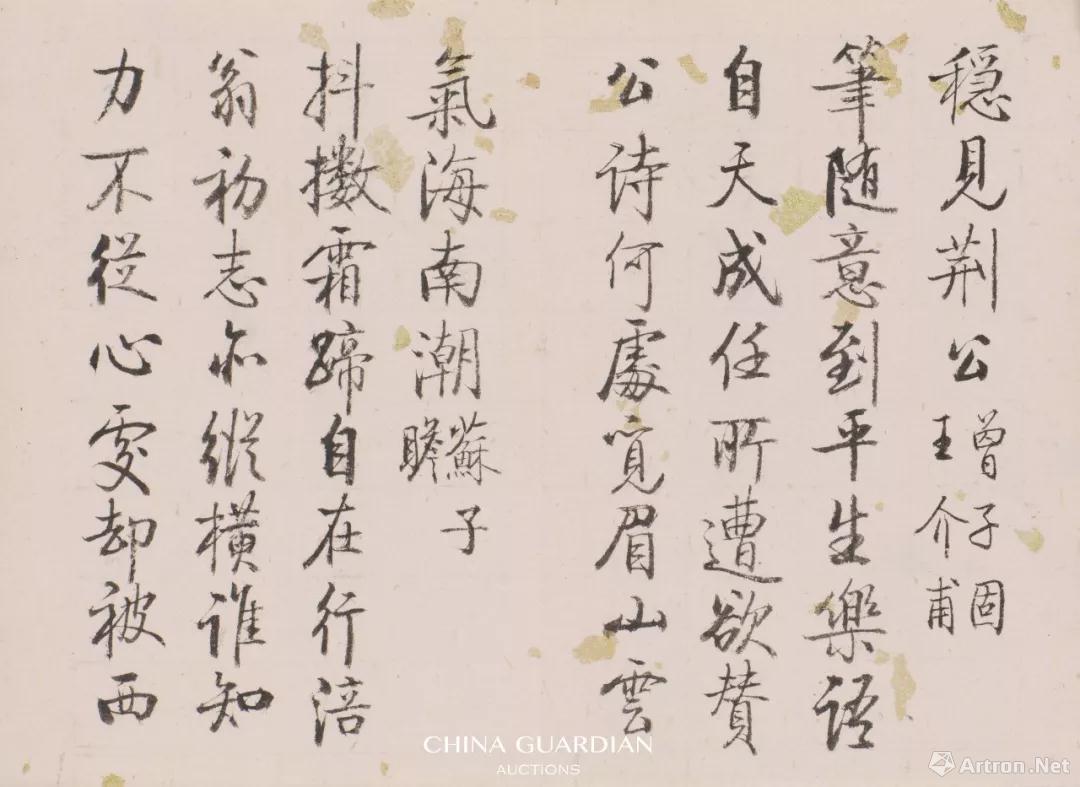 穩見荆公曾子固王介甫
筆随意到平生樂語
自天成任所遭欲賛
公诗何處覓眉山雲
氣海南潮蘇子瞻
抖擻霜蹄自在行涪
翁初志亦縱橫谁知
力不從心處却被西
CHINA GUARDIAN
AUCTIONS
Artron.Net